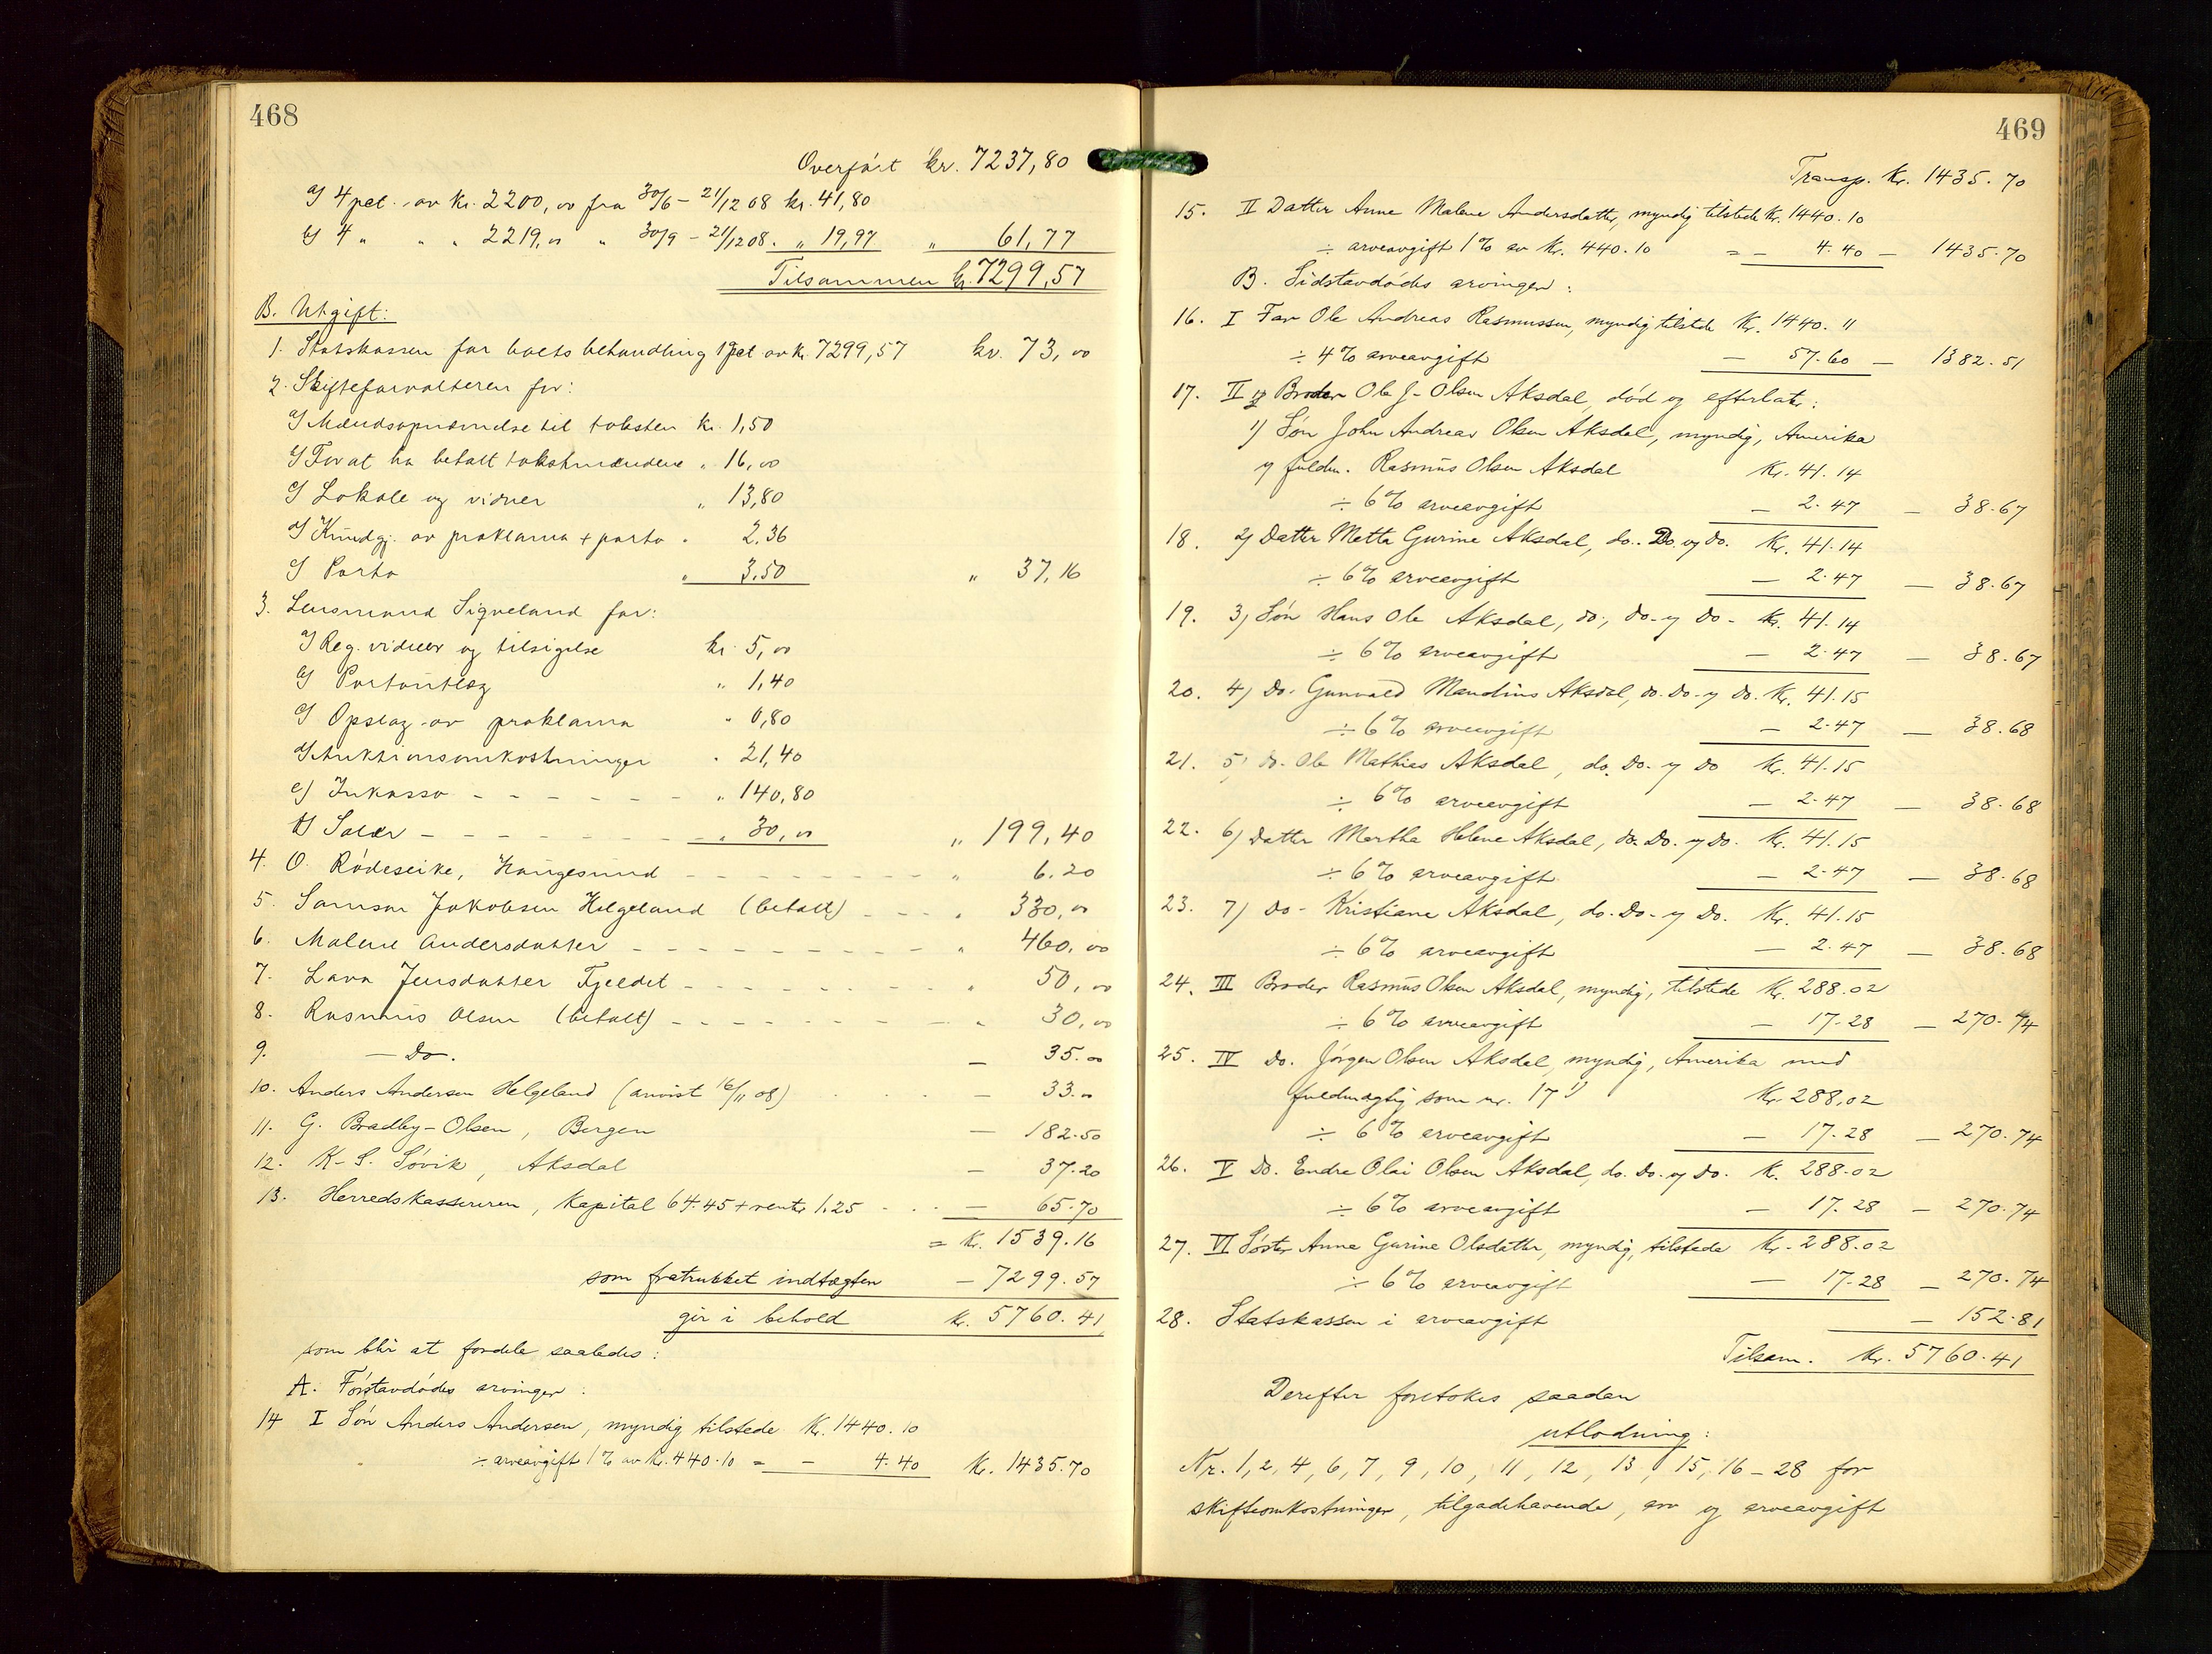 468
Overført kr. 7237,80
a) 4 pct. av kr. 2200,00 fra 30/6 - 21/12 08 kr. 41,80
b) 4 " " " 2219,00 " 30/9 - 21/12 08. " 19,97 " 61,77
Tilsammen kr. 7299,57
B. Utgift:
1. Statskassen for boets behandling 1 pct av kr. 7299,57 kr. 73,00
2. Skifteforvalteren for:
a) Mandsopnævnelse til taksten kr. 1,50
b) For at ha betalt takstmændene " 16,00
c) Lokale og vidner " 13,80
d) Kundgj. av proklama + porto " 2,36
e) Porto " 3.50 " 37,16
3. Lensmand Sigveland for:
a) Reg. vidner og tilsigelse kr. 5,00
b) Portoutlæg " 1,40
c) Opslag av proklama " 0,80
d) Auktionsomkostninger " 21,40
e) Inkasso - - - - - - " 140,80
f) Salær - - - - - - - " 30,00 " 199,40
4. O. Rødeseike, Haugesund - - - - - - - - - " 6.20
5. Samson Jakobsen Helgeland (betalt) - - - " 330,00
6. Malene Andersdatter - - - - - - - - - - " 460,00
7. Lava Jensdatter Fjeldet - - - - - - - - - " 50,00
8. Rasmus Olsen (betalt) - - - - - - - - - " 30,00
9. — Do. — 35.00
10. Anders Andersen Helgeland (anvist 16/11 08) . . . — 33.00
11. G. Bradby-Olsen, Bergen — 182.50
12. K. S. Søvik, Aksdal — 37.20
13. Herredskassereren, Kapital 64.45 + renter 1.25 . . . — 65.70
= Kr. 1539.16
som fratrukket indtægten — 7299.57
gir i behold Kr. 5760.41
som blir at fordele saaledes:
A. Førstavdødes arvinger:
14 I Søn Anders Andersen, myndig tilstede Kr. 1440.10
÷ arveavgift 1% av Kr. 440.10 = — 4.40 Kr. 1435.70
469
Transp. Kr. 1435.70
15. II Datter Anne Malene Andersdatter, myndig tilstede Kr. 1440.10
÷ arveavgift 1% av Kr. 440.10 = — 4.40 — 1435.70
B. Sidstavdødes arvinger:
16. I Far Ole Andreas Rasmussen, myndig tilstede Kr. 1440.11
÷ 4% arveavgift — 57.60 — 1382.51
17. II Broder Ole J. Olsen Aksdal, død og efterlater:
1) Søn John Andreas Olsen Aksdal, myndig, Amerika
v/ fuldm. Rasmus Olsen Aksdal Kr. 41.14
÷ 6% arveavgift — 2.47 — 38.67
18. 2) Datter Metta Gurine Aksdal, do. Do. og do. Kr. 41.14
÷ 6% arveavgift — 2.47 — 38.67
19. 3) Søn Hans Ole Aksdal, do., do. og do - Kr. 41.14
÷ 6% arveavgift — 2.47 — 38.67
20. 4) Do. Gunvald Maudius Aksdal, do. Do. og do. Kr. 41.15
÷ 6% arveavgift — 2.47 — 38.68
21. 5) do. Ole Mathias Aksdal, do. Do. og Do Kr. 41.15
÷ 6% arveavgift — 2.47 — 38.68
22. 6) Datter Martha Helene Aksdal, do. Do. og Do. Kr. 41.15
÷ 6% arveavgift — 2.47 — 38.68
23. 7) Do - Kristiane Aksdal, do. Do. og Do. Kr. 41.15
÷ 6% arveavgift — 2.47 — 38.68
24. III Broder Rasmus Olsen Aksdal, myndig, tilstede Kr. 288.02
÷ 6% arveavgift — 17.28 — 270.74
25. IV Do. Jørgen Olsen Aksdal, myndig, Amerika med
fuldmægtig som nr. 17 1) Kr. 288,02
÷ 6% arveavgift — 17.28 — 270.74
26. V Do. Endre Olai Olsen Aksdal, do. Do. og Do. K. 288.02
÷ 6% arveavgift — 17.28 — 270.74
27. VI Søster Anne Gurine Olsdatter, myndig, tilstede Kr. 288.02
÷ 6% arveavgift — 17.28 — 270.74
28. Statskassen i arveavgift — 152.81
Tilsam. Kr. 5760.41
Derefter foretokes saadan
utlodning:
Nr. 1, 2, 4, 6, 7, 9, 10, 11, 12, 13, 15, 16 - 28 for
skifteomkostninger, tilgodehavende, arv og arveavgift